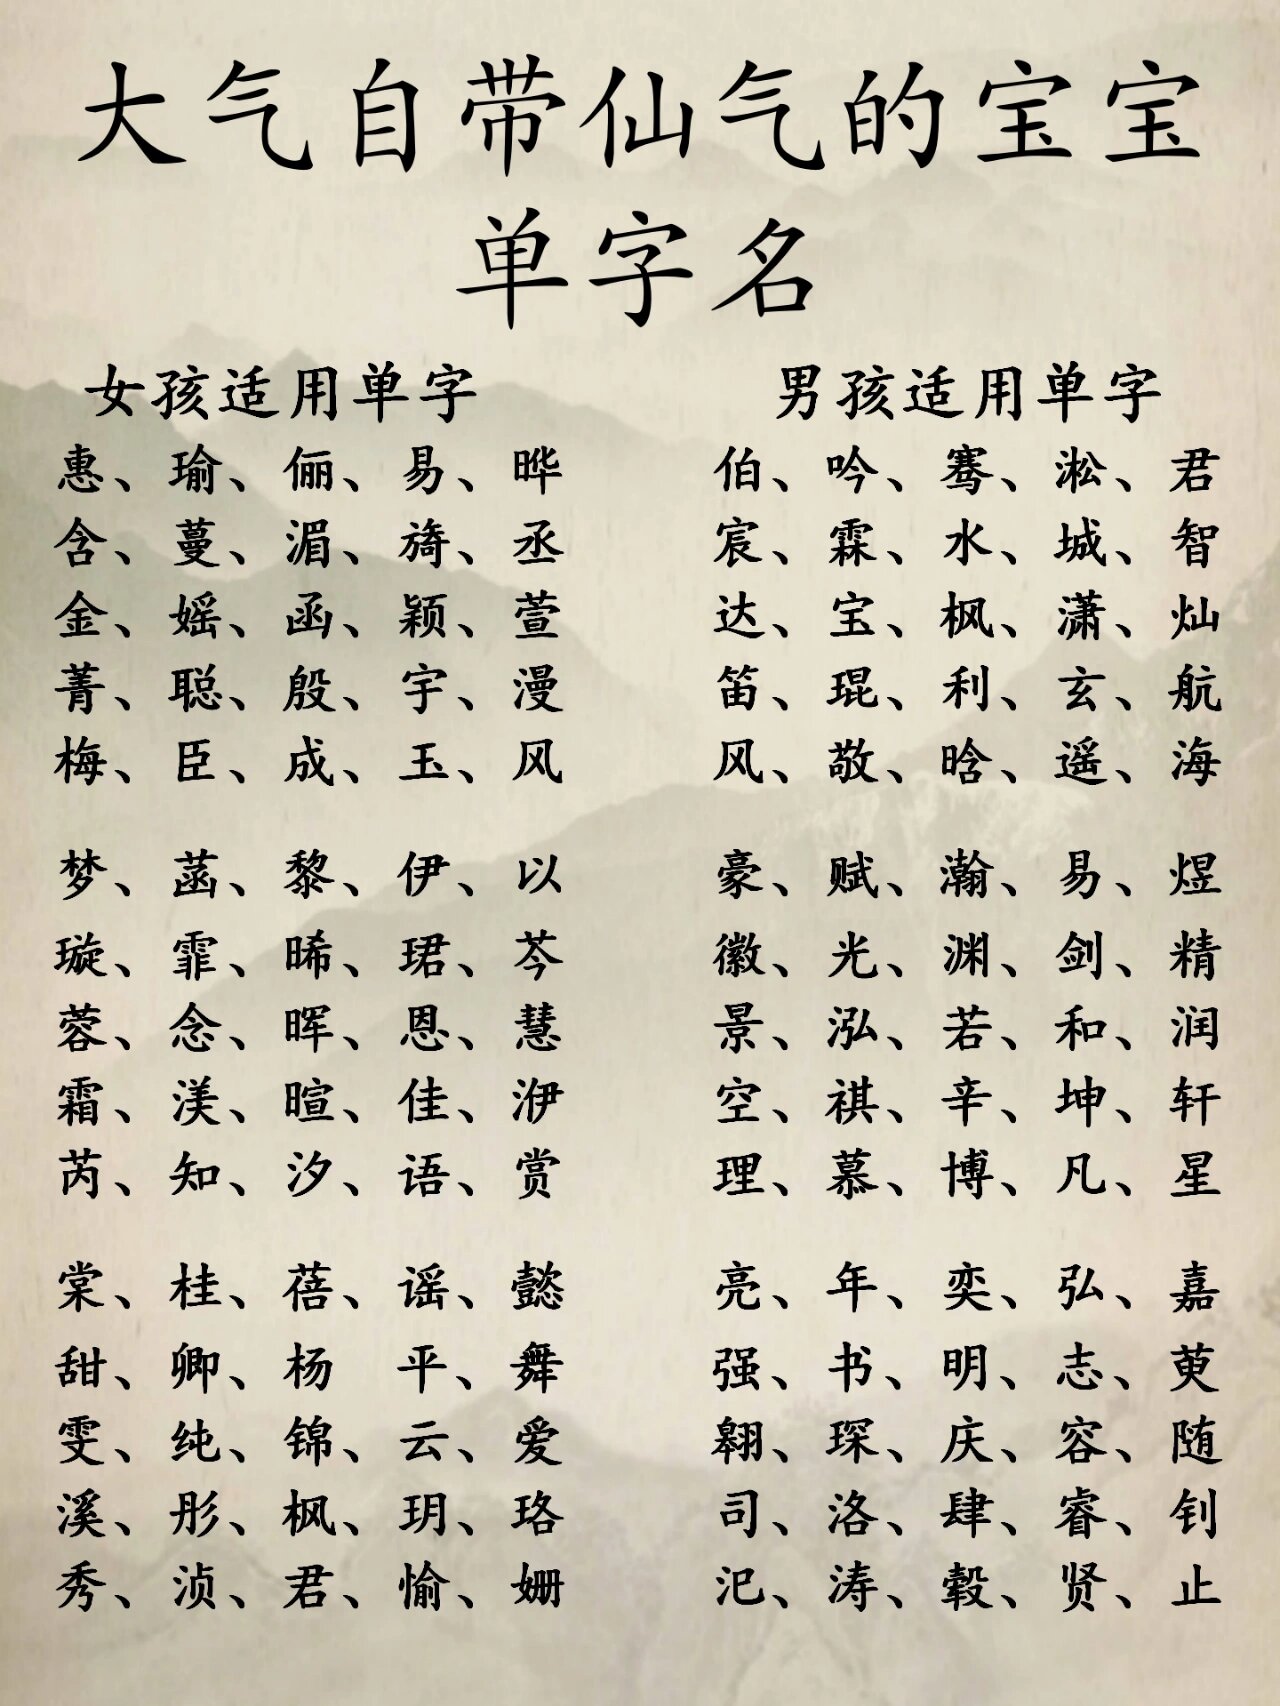 大气自带仙气的宝宝
单字名
女孩适用单字
惠、瑜、俪、易、晔
含、蔓、湄、旖、丞
金、媱、函、颖、萱
菁、聪、殷、宇、漫
梅、臣、成、玉、风
梦、菡、黎、伊、以
璇、霏、晞、珺、芩
蓉、念、晖、恩、慧
霜、渼、暄、佳、洢
芮、知、汐、语、赏
棠、桂、蓓、谣、懿
甜、卿、杨 平、舞
雯、纯、锦、云、爱
溪、彤、枫、玥、珞
秀、浈、君、愉、姗
男孩适用单字
伯、吟、骞、淞、君
宸、霖、水、城、智
达、宝、枫、潇、灿
笛、琨、利、玄、航
风、敬、晗、遥、海
豪、赋、瀚、易、煜
徽、光、渊、剑、精
景、泓、若、和、润
空、祺、辛、坤、轩
理、慕、博、凡、星
亮、年、奕、弘、嘉
强、书、明、志、萸
翱、琛、庆、容、随
司、洛、肆、睿、钊
汜、涛、毂、贤、止